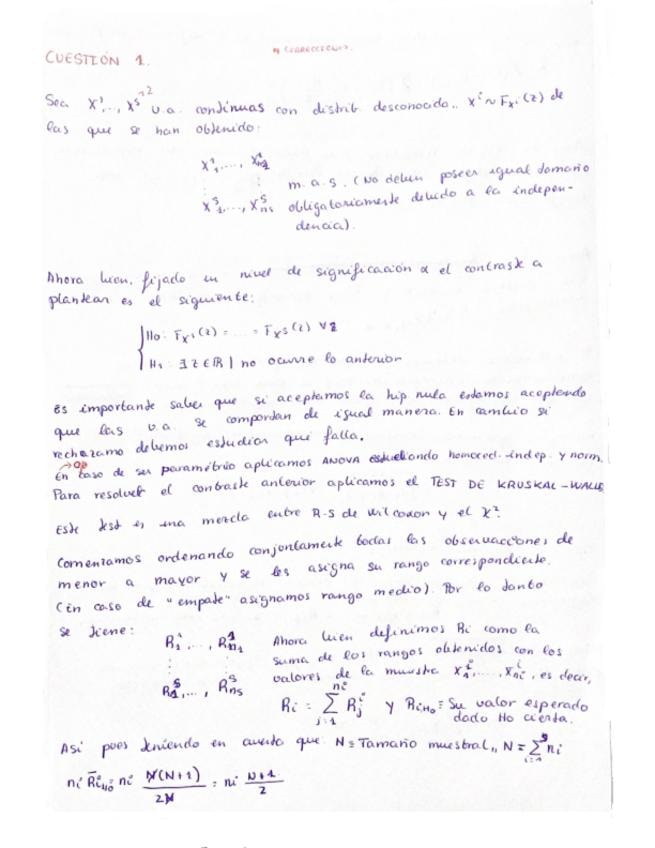 * CORRECCIONES.
CUESTIÓN 1.
>2
Sea X¹,..., Xˢ v.a. continuas con distrib desconocida,, Xⁱ ~ F_Xⁱ(z) de
las que se han obtenido:
X¹₁, ..., X¹ₙ₁
⋮ ⋮ m.a.s. (No deben poseer igual tamaño
Xˢ₁, ..., Xˢₙₛ obligatoriamente debido a la indepen-
dencia).
Ahora bien, fijado un nivel de significación α el contraste a
plantear es el siguiente:
{ H₀: F_X¹(z) = ... = F_Xˢ(z) ∀z
H₁: ∃ z ∈ ℝ | no ocurre lo anterior
Es importante saber que si aceptamos la hip nula estamos aceptando
que las v.a. se comportan de igual manera. En cambio si
rechazamo debemos estudiar que falla.
En caso de ser paramétrio aplicamos ANOVA estudiando homoced.-indep. y norm.
Para resolver el contraste anterior aplicamos el TEST DE KRUSKAL-WALLIS
Este test es una mezcla entre R-S de Wilcoxon y el χ².
Comenzamos ordenando conjontamente todas las observacciones de
menor a mayor y se les asigna su rango correspondiente.
(in caso de "empate" asignamos rango medio). Por lo tanto
se tiene:
R¹₁, ..., R¹ₙ₁ Ahora bien definimos Ri como la
⋮ ⋮ suma de los rangos obtenidos con los
Rˢ₁, ..., Rˢₙₛ valores de la muestra Xⁱ₁, ..., Xⁱₙᵢ, es decir,
Ri = Σ_{j=1}^{ni} Rⁱⱼ y Ri_H₀ ≡ Su valor esperado
dado H₀ cierta.
Así pues teniendo en cuenta que N ≡ Tamaño muestral,, N = Σ_{i=1}^{s} ni
ni R̄i_H₀ = ni N(N+1) / 2N = ni N+1 / 2